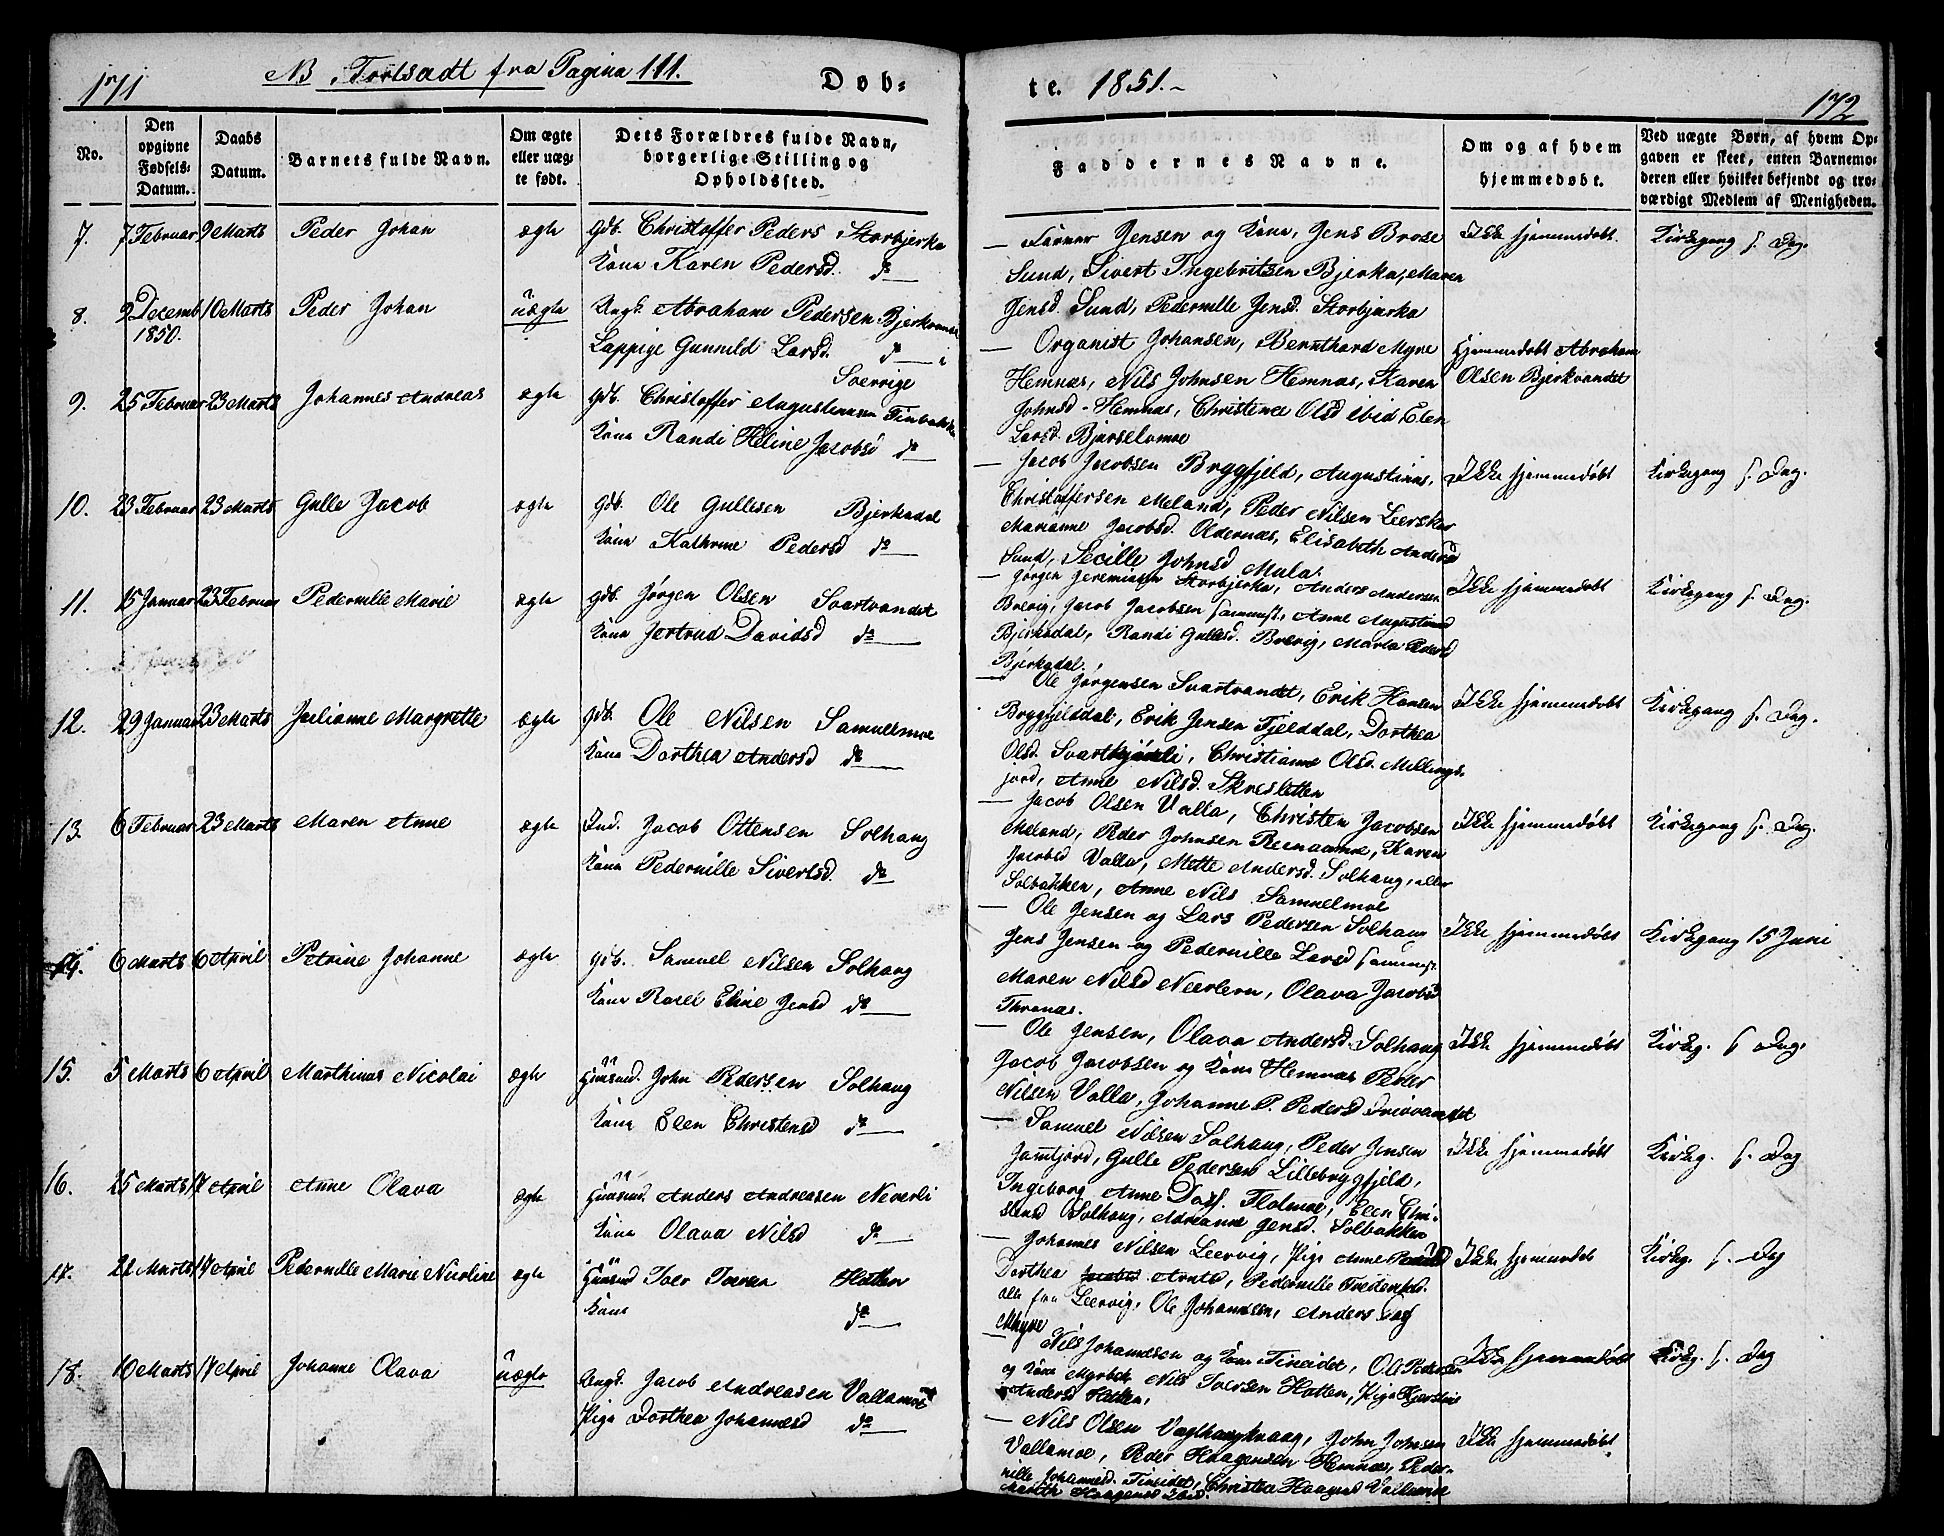 171
NB Fortsadt fra Pagina 111.
Døb-
te. 1851.-
172
No.
Den opgivne Fødsels-Datum.
Daabs Datum.
Barnets fulde Navn.
Om ægte eller uæg-te født.
Dets Forældres fulde Navn, borgerlige Stilling og Opholdssted.
Faddernes Navne.
Om og af hvem hjemmedøbt.
Ved uægte Børn, af hvem Op-gaven er skeet, enten Barnemo-deren eller hvilket bekjendt og tro-værdigt Medlem af Menigheden.
7. 7 Februar 9 Marts Peder Johan ægte Gdb. Christoffer Peders Storbjerka
Kone Karen Pedersd. do
Jensen og Kone, Jens Brose
Sund, Sivert Ingebritsen Bjerka, Maren
Jensd Sund, Pedernille Jensd. Storbjerka
Ikke hjemmedøbt. Kirkegang s. Dag.
8. 9 Decemb 1850. 10 Marts Peder Johan uægte Ungk. Abraham Pedersen Bjerkvandet
Lappige Gunnild Larsd. do i
Sverrige
Organist Johansen, Bernthard Myre
Hemnæs, Nils Johnsen Hemnæs, Karen
Johnsd Hemnæs, Christine Olsd ibid, Elen
Larsd. Bjurselomoe
Hjemmedøbt Abraham
Olsen Bjerkvandet
9. 25 Februar 23 Marts Johannes Andreas ægte Gdb. Christoffer Augustinusen Finbakken
Kone Randi Heline Jacobsd do
Jacob Jacobsen Bryggfjeld, Augustinus
Christoffersen Meland, Peder Nilsen Leerskar
Marianne Jacobsd. Oldernæs, Elisabeth Andersd
Sund, Secille Johnsd Mula.
Ikke hjemmedøbt Kirkegang s. Dag.
10. 23 Februar 23 Marts Gulle Jacob ægte Gdb. Ole Gullesen Bjerkadal
Kone Kathrine Pedersd do
Jørgen Jeremiasen Storbjerka, Anders Andersen
Brevig, Jacob Jacobsen sammest., Anne Augustinusd
Bjerkadal, Randi Gullesd. Brevig, Marta Pedersd
Bjerkadal.
Ikke hjemmedøbt Kirkegang s. Dag.
11. 15 Januar 23 Februar Pedernille Marie ægte Gdb. Jørgen Olsen Svartvandet
Kone Jertrud Davidsd do
Ole Jørgensen Svartvandet, Erik Hansen
Bryggfjelddal, Erik Jensen Fjelddal, Dorthea
Olsd. Svartkjønli, Christianne Olsd. Mellings-
jord, Anne Nilsd. Skresletten
Ikke hjemmedøbt Kirkegang s. Dag.
12. 29 Januar 23 Marts Julianne Margrette ægte Gdb. Ole Nilsen Samuelmoe
Kone Dorthea Andersd do
Jacob Olsen Valla, Christen Jacobsen
Meland, Peder Johnsen Reenaamoe, Karen
Jacobsd Valla, Mette Andersd. Solhaug, eller
Solbakken, Anne Nils Samuelmoe
Ikke hjemmedøbt Kirkegang s. Dag.
13. 6 Februar 23 Marts Maren Anne ægte Ind. Jacob Ottensen Solhaug
Kone Pedernille Sivertsd. do
Ole Jensen og Lars Pedersen Solhaug
Jens Jensen og Pedernille Larsd sammest.
Maren Nilsd Neerlern, Olava Jacobsd
Thronæs.
Ikke hjemmedøbt Kirkegang 15 Juni
14. 6 Marts 6 April Petrine Johanne ægte Gdb. Samuel Nilsen Solhaug
Kone Rasel Eline Jensd do
Ole Jensen, Olava Andersd. Solhaug
Jacob Jacobsen og Kone Hemnæs Peder
Nilsen Valla, Johanne P. Pedersd
Ikke hjemmedøbt Kirkg. s. Dag.
15. 5 Marts 6 April Marthinus Nicolai ægte Huusmd. John Pedersen Solhaug
Kone Elen Christensd do
Samuel Nilsen Solhaug, Peder Jensen
Jamtjord, Gulle Pedersen Lillebryggfjeld,
Ingeborg Anne Flolmoe, Elen Chri-
stensd Solhaug, Adrianne Jensd. Solbakken
Ikke hjemmedøbt Kirkg. s. Dag
16. 25 Marts 17 April Anne Olava ægte Huusmd. Anders Andreasen Neverli
Kone Olava Nilsd do
Johannes Nilsen Leervig, Pige Anne
Dorthea Arntsd, Pedernille Frederiksd.
alle fra Leervig, Ole Johannsen, Anders
Myre
Ikke hjemmedøbt Kirkg. s. Dag
17. 22 Marts 17 April Pedernille Marie Nicoline ægte Huusmd Iver Iversen Hatten
Kone do
Nils Johannesen og Kone Fineidet, Ole Pedersen
og Kone Nils Iversen Hatten, Pige
Andersd Hatten,
Ikke hjemmedøbt Kirkg. s. Dag
18. 16 Marts 17 April Johanne Olava uægte Ungk. Jacob Andreasen Vallamoe
Pige Dorthea Johannesd do
Nils Olsen John Johnsen
Vallamoe, Peder Haagensen Hemnæs, Peder-
nille Johannesd. Fineidet, Christen Haagensd Vallamoe
Marth Haagensd ibid.
Ikke hjemmedøbt